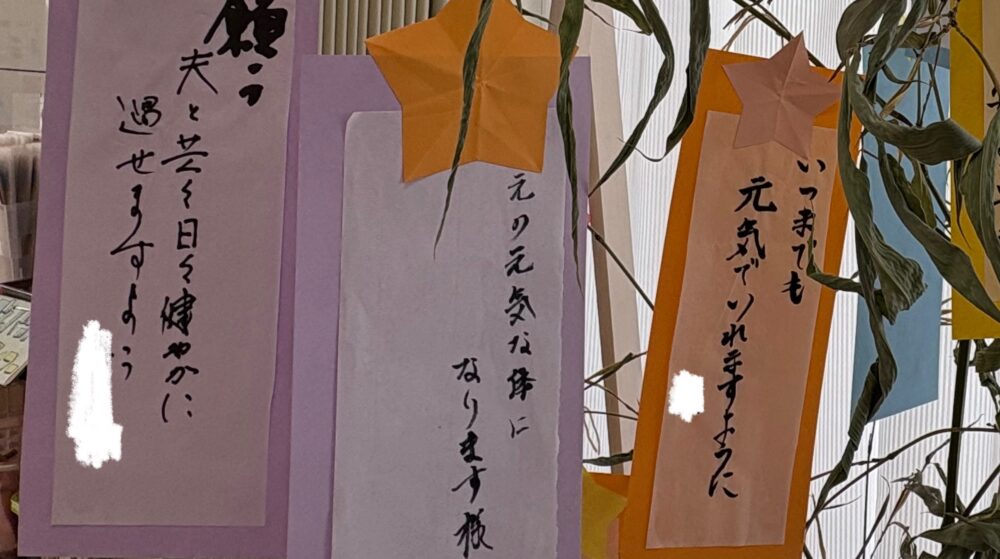 願う
夫と共々日々健やかに
過せますよう
元の元気な体に
なります様
いつまでも
元気でいれますように